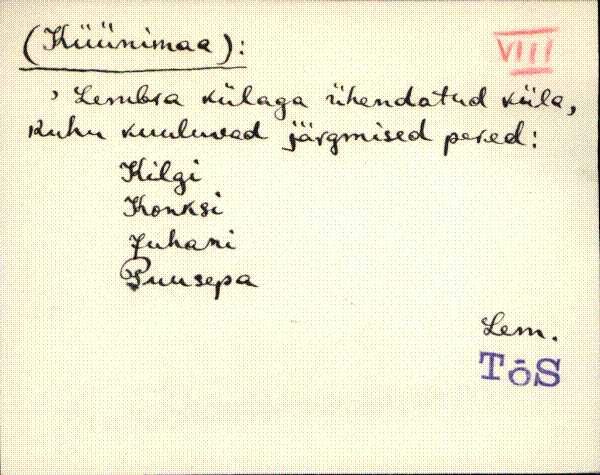 (Küünimaa):
VIII
, Lembra külaga ühendatud küla,
kuhu kuuluvad järgmised pered:
Kilgi
Konksi
Juhani
Puusepa
Lem.
TõS